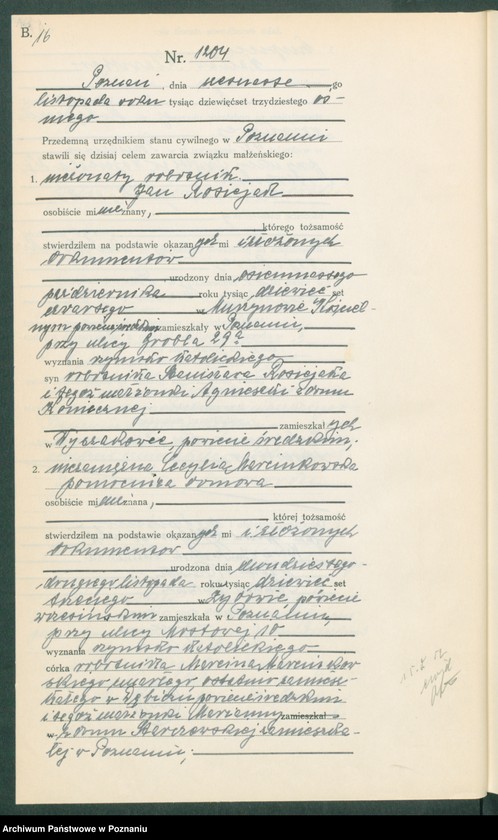 B. 16
Nr. 1204
Poznań, dnia go
listopada roku tysiąc dziewięćset trzydziestego ós-
mego
Przedemną urzędnikiem stanu cywilnego w Poznaniu
stawili się dzisiaj celem zawarcia związku małżeńskiego:
1. nieżonaty robotnik
Jan Rosiejak
osobiście mi nieznany,
którego tożsamość
stwierdziłem na podstawie okazanych mi i złożonych
dokumentów
urodzony dnia osiemnastego
października roku tysiąc dziewięć set
czwartego w
zamieszkały w Poznaniu,
przy ulicy Grobla 29a
wyznania rzymsko katolickiego
syn robotnika Stanisława Rosiejaka
i tegoż małżonki Agnieszki z domu
Koniecznej
zamieszkałych
w powiecie średzkim,
2. niezamężna Cecylia Marcinkowska
pomocnica domowa
osobiście mi nieznana,
której tożsamość
stwierdziłem na podstawie okazanych mi i złożonych
dokumentów
urodzona dnia dwudziestego
drugiego listopada roku tysiąc dziewięć set
trzeciego w powiecie
wrzesińskim zamieszkała w Poznaniu,
przy ulicy Mostowej 10
wyznania rzymsko katolickiego
córka robotnika Marcina Marcinkow-
skiego, zmarłego ostatnio zamiesz-
kałego w powiecie średzkim
i tegoż małżonki Marianny zamieszkał
w z domu zamieszka-
łej w Poznaniu,
Archiwum Państwowe w Poznaniu